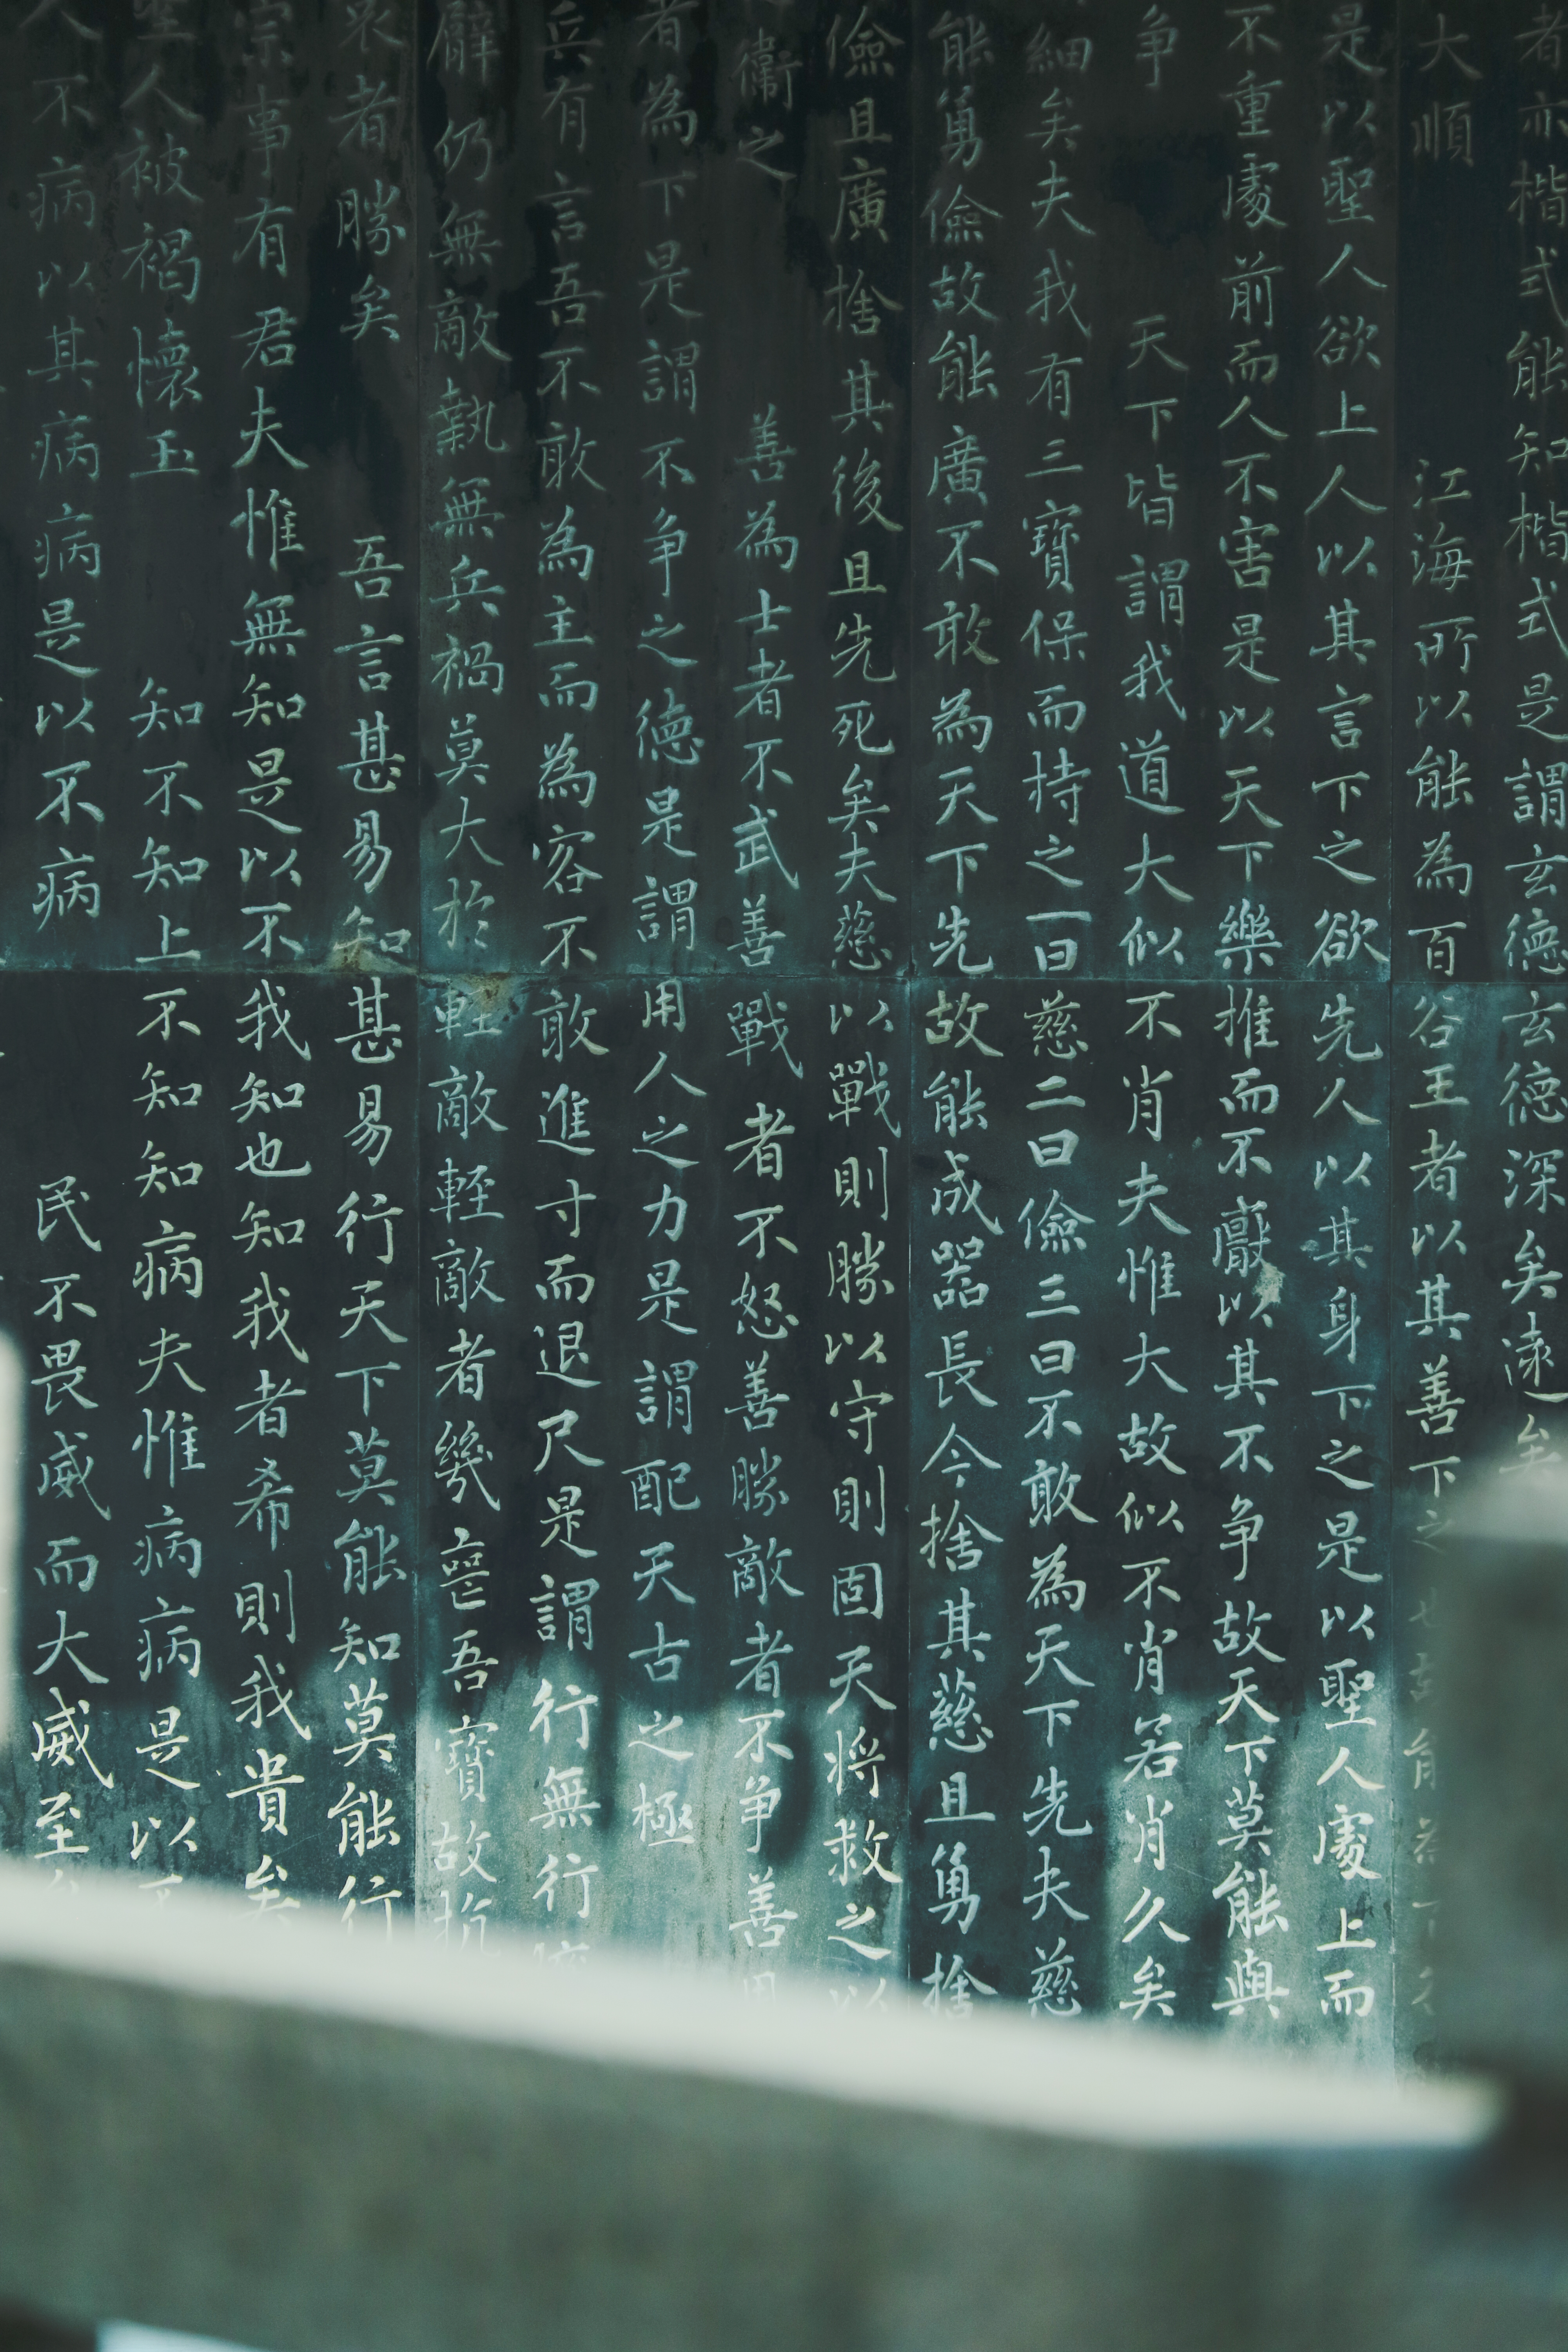 者亦楷式能知楷式是謂玄德玄德深矣遠
大順 江海所以能為百谷王者以其善下之
是以聖人欲上人以其言下之欲先人以其身下之是以聖人處上而
不重處前而人不害是以天下樂推而不厭以其不争故天下莫能與
争 天下皆謂我道大似不肖夫惟大故似不肖若肖久矣
細矣夫我有三寶保而持之一曰慈二曰儉三曰不敢為天下先夫慈
能勇儉故能廣不敢為天下先故能成器長今捨其慈且勇捨
儉且廣捨其後且先死矣夫慈以戰則勝以守則固天将救之以
衞之 善為士者不武善戰者不怒善勝敵者不争善用
者為下是謂不争之德是謂用人之力是謂配天古之極
兵有言吾不敢為主而為客不敢進寸而退尺是謂行無行
臂仍無敵執無兵禍莫大於輕敵輕敵者幾喪吾寶故抗
哀者勝矣 吾言甚易知甚易行天下莫能知莫能行
宗事有君夫惟無知是以不我知也知我者希則我貴矣
聖人被褐懷玉 知不知上不知知病夫惟病病是以不
人不病以其病病是以不病 民不畏威而大威至